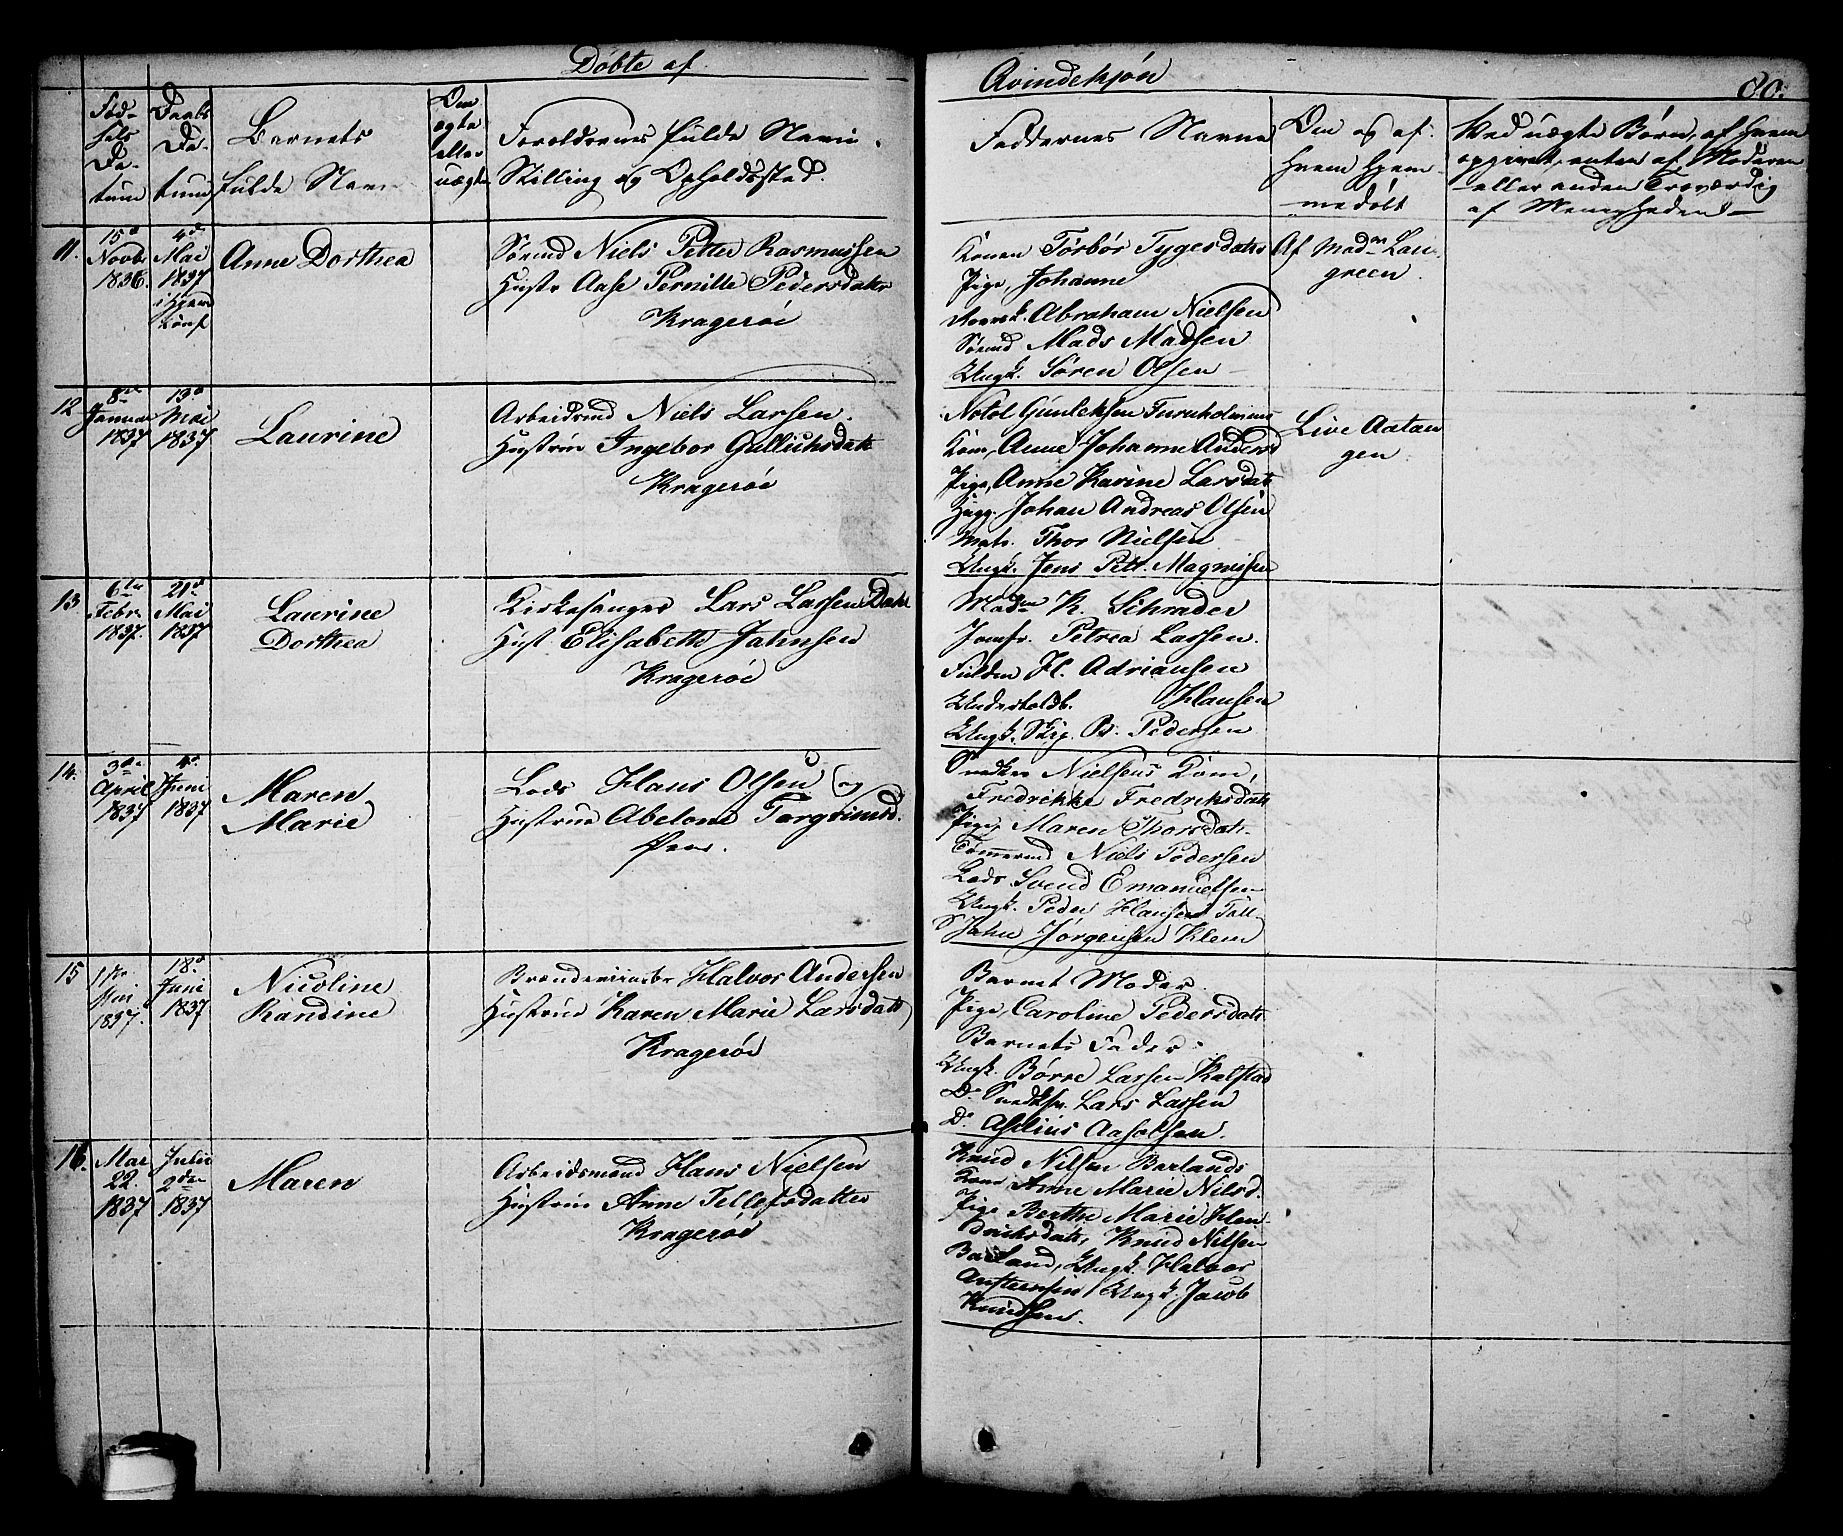 Døbte af
Qvindekjön
80.
Fødsels Datum
Daabs Datum
Barnets fulde Navn
Om ægte eller uægte
Forældrenes fulde Navn,
Stilling og Opholdssted.
Faddernes Navne
Om og af
hvem hjem-
medøbt
Ved uægte Børn, af hvem
opgivet, enten af Moderen
eller anden Troværdig
af Menigheden
11. 15d Novbr 1836.
4d Mai 1837
Anne Dorthea
Sømd Niels Petter Rasmussen
Hustr Aase Pernille Pedersdatr
Kragerøe
Konen Torbör Tygesdatr
Pige, Johanne
Abraham Nielsen
Sømd Mads Madsen
Ungk. Søren Olsen
Af Madm Lan-
green
12 8de Januar 1837
13d Mai 1837
Laurine
Arbeidsmd Niels Larsen.
Hustrue Ingebor Gulliksdatr
Kragerøe
Kone, Anne Johanne Andersd
Pige, Anne Karine Larsdatr
Johan Andreas Olsen
Matr. Thor Nielsen
Ungk. Jens Pett. Magnusen
Live Aatan
gen
13 6te Febr. 1837.
21d Mai 1837
Laurine
Dorthea
Kirkesanger Lars Larsen Dahl
Hust. Elisabeth Jahnsen
Kragerøe
Madm K. Schrader
Jomfr. Petrea Larsen.
H. Adriansen
Hansen
Ungk. B. Pedersen
14. 3de April 1837
4d Juni 1837
Maren
Marie
Lods Hans Olsen og
Hustrue Abelone Torgrimsd.
Snedker Nielsens Kone,
Fredrikke Fredriksdatr
Pige, Maren Thorsdatr
Tømmermd Niels Pedersen
Lods Svend Emanuelsen
Ungk. Peder Hansen
Jahn Jørgensen Klem
15 1te Mai 1837.
18d Juni 1837
Nicoline
Randine
Halvor Andersen
Hustrue Karen Marie Larsdatr
Kragerøe
Barnet Moder
Pige, Caroline Pedersdatr
Barnets Fader
Ungk. Børre Larsen Kalstad
Do Snedksv. Lars Larsen
Do Aslius Aasolsen.
16. Mar 22. 1837
Julii 2den 1837
Maren
Arbeidsmand Hans Nielsen
Hustrue Anne Tellefsdatter
Kragerøe
Knud Nilsen Barlands
Kone Anne Marie Nilsd.
Pige Berthe Marie Hen-
driksdatr, Knud Nilsen
Barland, Ungk. Halvor
Austensen Ungk. Jacob
Knudsen.